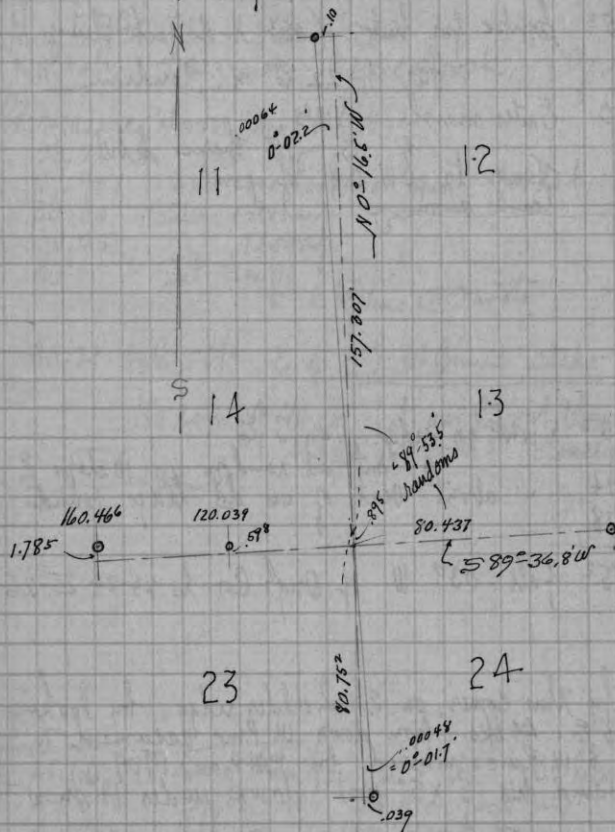 N
.10
.00064
0°-02.2'
N 0°-16.5' W
11
12
157.207
S
14
13
-89°-53.5'
randoms
.895
160.466
120.039
80.437
1.785
.598
S 89°-36.8' W
23
24
80.752
.00048
= 0°-01.7'
.039